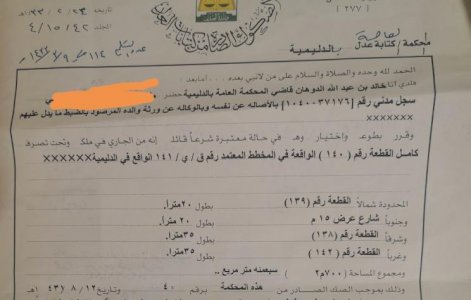 (٢٧٧)
صكوك الرهن
٢٣/٢/٢٣
٤/١٥/٤٢
محكمة/كتابة عدل العامة بالدليمية
الحمد لله وحده والصلاة والسلام على من لانبي بعده ... امابعد
فلدي انا خالد بن عبد الله الدوهان قاضي المحكمة العامة بالدليمية حضر
سجل مدني رقم [١٠٤٠٠٣٧١٧٦] بالأصاله عن نفسه وبالوكاله عن ورثة والده المرصود بالضبط ما يدل عليهم
وقرر بطوعه واختياره وهو في حالة معتبرة شرعاً قائلاً إنه من الجاري في ملكه وتحت تصرفه
كامل القطعة رقم (١٤٠) الواقعة في المخطط المعتمد رقم ق/ي/١٤١ الواقع في الدليمية××××××
المحدودة شمالاً القطعة رقم (١٣٩) بطول ٢٠متراً.
وجنوباً شارع عرض ١٥ م بطول ٢٠ متراً
وشرقاً القطعة رقم (١٣٨) بطول ٣٥متراً.
وغرباً القطعة رقم (١٤٢) بطول ٣٥متراً.
ومجموع المساحة (٧٠٠م٢) سبعمئه متر مربع..
وذلك بموجب الصك الصادر من هذه المحكمة برقم ٤٠ وتاريخ ٨/١٢/